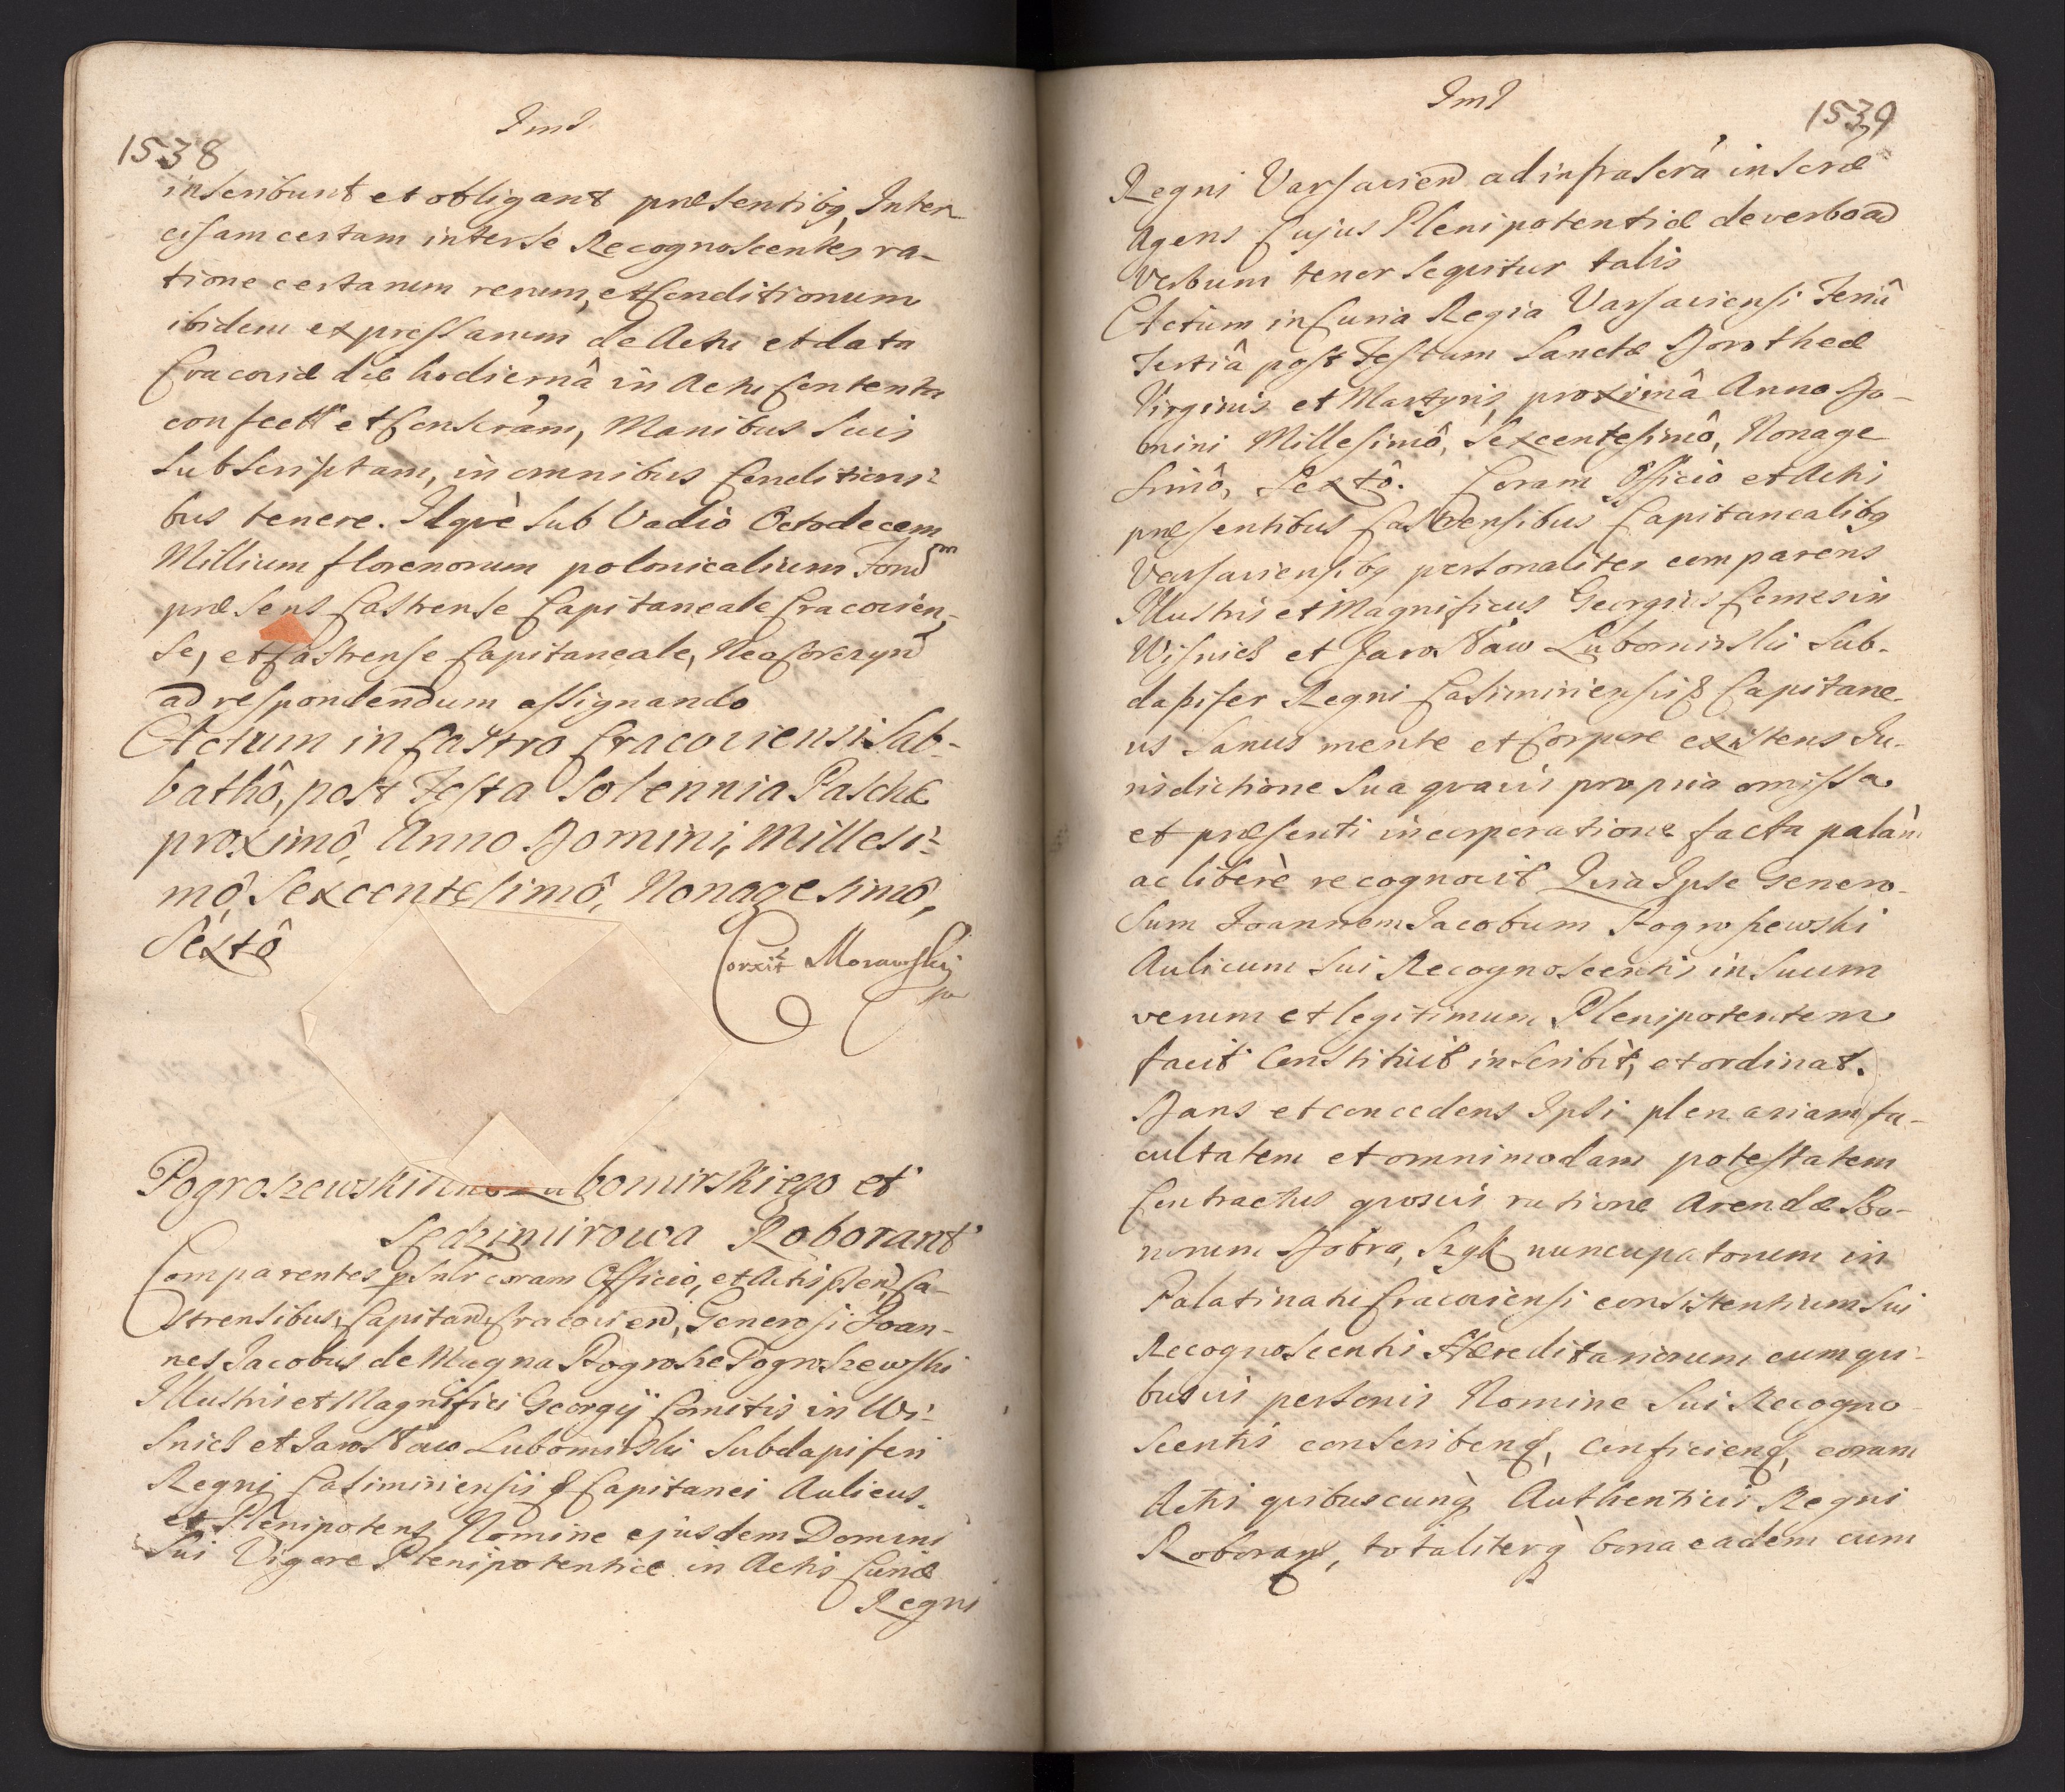 Ind
1538
inscribunt et obligant præsentibq, Inter
cisam certam inter se Recognoscentes ra-
tione certarum rerum, et Conditionum
ibidem expressarum de Actu et data
Cracoviæ die hodiernâ in Actu Contenta
confect et Conscram, Manibus Suis
Subscriptam, in omnibus Conditioni-
bus tenere. Idqvè Sub Vadiô Octodecem
Millium florenorum polonicalium Forū
præsens Castrense Capitaneale Cracovien-
se, et Castrense Capitaneale, Neoforczyn
ad respondendum assignando
Actum in Castro Cracoviensi Sab-
bathô, post Festa Solennia Paschæ
proximô, Anno Domini, Millesi-
mô, Sexcentesimô, Nonagesimô,
Sextô
Corxit Morawski
Pogroszewski Lubomirskiego et
Sędzimirowa Roborant
Comparentes psnlr coram Officio, et Actis psen, Ca-
strensibus, Capitan Cracovien, Generosi Joan-
nes Jacobus de Magna Pogrosze Pogroszewski
Illustris et Magnifici Georgij Comitis in Wi-
snicz et Jarosław Lubomirski Subdapiferi
Regni Casimiriensis & Capitanei Aulicus
et Plenipotens Nomine ejusdem Domini
Sui Vigore Plenipotentiæ in Actis Curiæ
Regni
Ind
1539
Regni Varsavien ad infrascra inscrd
Agens Cujus Plenipotentiæ de verbo ad
Verbum tenor Seqvitur talis
Actum in Curia Regia Varsaviensi Feriâ
Tertiâ post Festum Sanctæ Dorotheæ
Virginis et Martyris, proximâ Anno Do-
mini Millesimô, Sexcentesimô, Nonage
simô, Sextô. Coram Officio et Actis
præsentibus Castrensibus Capitanealibq
Varsaviensibq personaliter comparens
Illustris et Magnificus Georgius Comes in
Wisnicz et Jarosław Lubomirski Sub-
dapifer Regni Casimiriensis & Capitane-
us Sanus mente et Corpore existens Ju-
risdictione Sua qvavis propria omissa
et præsenti incorporatione facta palàm
ac liberè recognovit Quia Ipse Genero-
sum Joannem Jacobum Pogroszewski
Aulicum Sui Recognoscentis in Suum
verum et legitimum Plenipotentem
facit Constituit inscribit, et ordinat.
Dans et concedens Ipsi plenariam fa-
cultatem et omnimodam potestatem
Contractus qvosvis ratione Arendæ Bo-
norum Dobra, nuncupatorum in
Palatinatu Cracoviensi consistentium Sui
Recognoscentis Hæreditariorum cum qvi-
busvis personis Nomine Sui Recogno-
scentis conscribend, conficiend, coram
Actis qvibuscunq Authenticis Regni
Roborand, totaliterq bona eadem cum